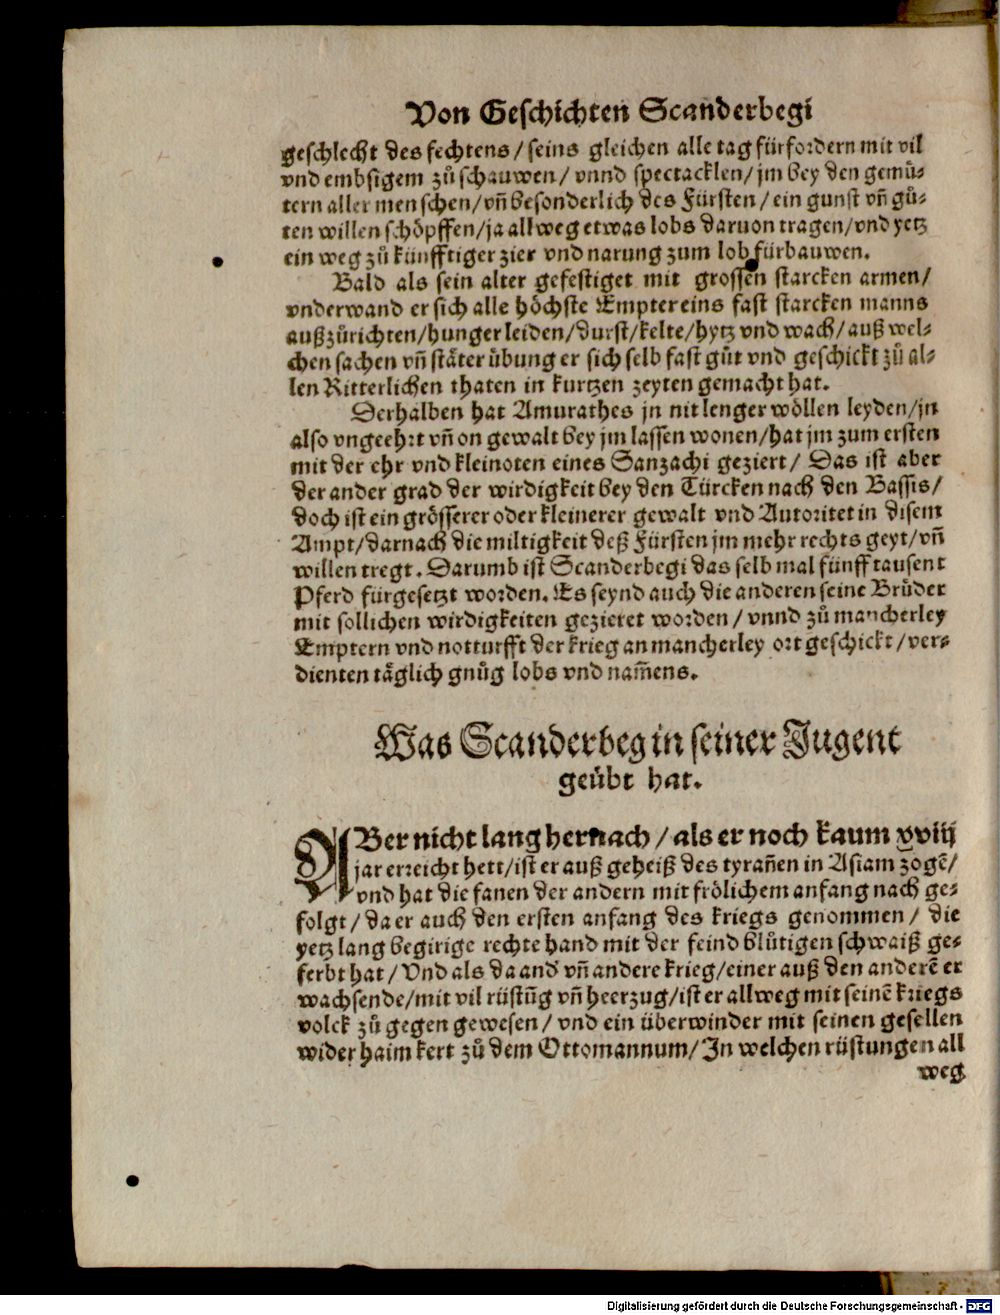 Von Geschichten Scanderbegi
geschlecht des fechtens / seins gleichen alle tag fürfordern mit vil
vnd embsigem zů schauwen / vnnd spectacklen / jm bey den gemů-
tern aller menschen / vñ besonderlich des Fürsten / ein gunst vñ gů-
ten willen schöpffen / ja allweg etwas lobs daruon tragen / vnd yetz
ein weg zů künfftiger zier vnd narung zum lob fürbauwen.
Bald als sein alter gefestiget mit grossen starcken armen /
vnderwand er sich alle höchste Empter eins fast starcken manns
außzůrichten / hunger leiden / durst / kelte / hytz vnd wach / auß wel-
chen sachen vñ stäter übung er sich selb fast gůt vnd geschickt zů al-
len Ritterlichen thaten in kurtzen zeyten gemacht hat.
Derhalben hat Amurathes jn nit lenger wöllen leyden / jn
also vngeehrt vñ on gewalt bey jm lassen wonen / hat jm zum ersten
mit der ehr vnd kleinoten eines Sanzachi geziert / Das ist aber
der ander grad der wirdigkeit bey den Türcken nach den Bassis /
doch ist ein grösserer oder kleinerer gewalt vnd Autoritet in disem
Ampt / darnach die miltigkeit deß Fürsten jm mehr rechts geyt / vñ
willen tregt. Darumb ist Scanderbegi das selb mal fünff tausent
Pferd fürgesetzt worden. Es seynd auch die anderen seine Brůder
mit sollichen wirdigkeiten gezieret worden / vnnd zů mancherley
Emptern vnd notturfft der krieg an mancherley ort geschickt / ver-
dienten täglich gnůg lobs vnd nam̃ens.
Was Scanderbeg in seiner Jugent
geůbt hat.
ABer nicht lang hernach / als er noch kaum xviij
jar erreicht hett / ist er auß geheiß des tyrañen in Asiam zogẽ /
vnd hat die fanen der andern mit frölichem anfang nach ge-
folgt / da er auch den ersten anfang des kriegs genommen / die
yetz lang begirige rechte hand mit der feind blůtigen schwaiß ge-
ferbt hat / Vnd als da and' vñ andere krieg / einer auß den anderẽ er
wachsende / mit vil rüstũg vñ heerzug / ist er allweg mit seinẽ kriegs
volck zů gegen gewesen / vnd ein überwinder mit seinen gesellen
wider haim kert zů dem Ottomannum / In welchen rüstungen all
weg
Digitalisierung gefördert durch die Deutsche Forschungsgemeinschaft - DFG